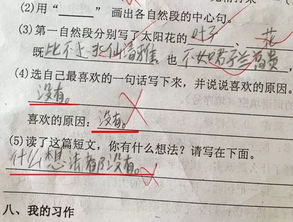 (2)用“——”画出各自然段的中心句。
(3)第一自然段分别写了太阳花的叶子 花
既比不上水仙清雅 也不如君子兰富贵
(4)选自己最喜欢的一句话写下来，并说说喜欢的原因。
没有。
喜欢的原因：没有。
(5)读了这篇短文，你有什么想法？请写在下面。
什么想法都没有。
八、我的习作